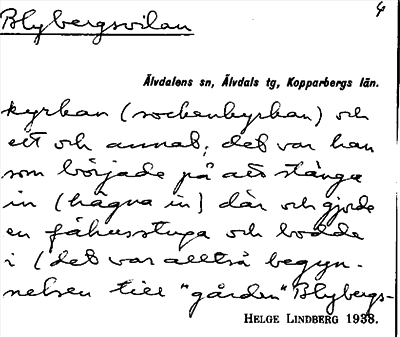 Blybergsvilan
4
Älvdalens sn, Älvdals tg, Kopparbergs län.
kyrkan (sockenkyrkan) och
ett och annat; det var han
som började på att stänga
in (hägna in) där och gjorde
en fähusstuga och bodde
i (det var alltså begyn-
nelsen till "gården" Blybergs-
HELGE LINDBERG 1938.